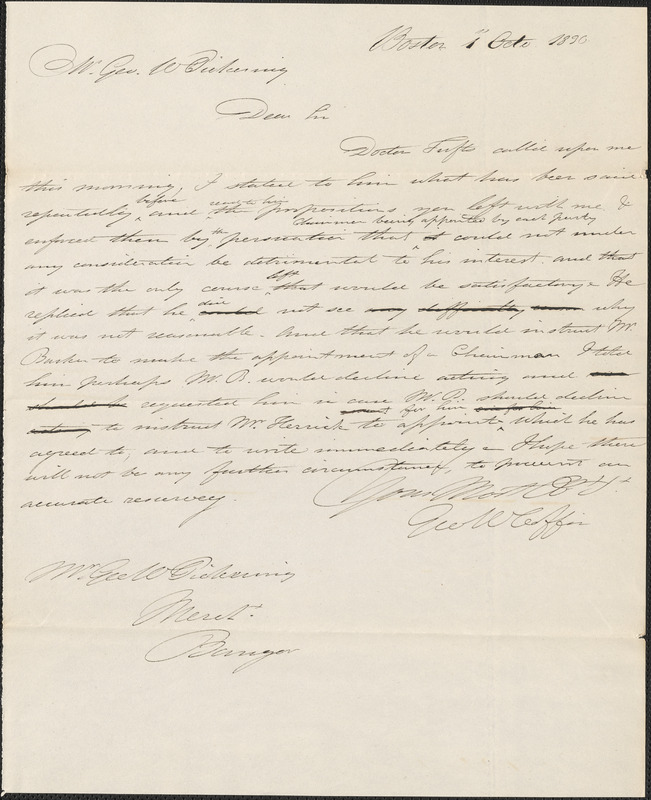 Boston 1st Octo 1830
Mr. Geo. W Pickering
Dear Sir
Doctor Tufts called upon me
this morning, I stated to him what has been said
before
repeatedly and the propositions you left with me &
Chairman being appointed by each party
enforced them by the persuation that it could not under
any consideration be detrimental to his interest. and that
left
it was the only course that would be satisfactory - He
did
replied that he could not see any difficulty why
it was not reasonable. And that he would instruct Mr.
Barker to make the appointment of a Chainman I told
him perhaps Mr. B. would decline acting and
should be requested him in case Mr. B. should decline
for him
acting to instruct Mr Herrick to appoint which he has
agreed to, and to write immediately - I hope there
will not be any further circumstances, to prevent an
accurate resurvey.
Yours Most Obt. St.
Geo W Coffin
Mr. Geo W Pickering
Mercht.
Bangor